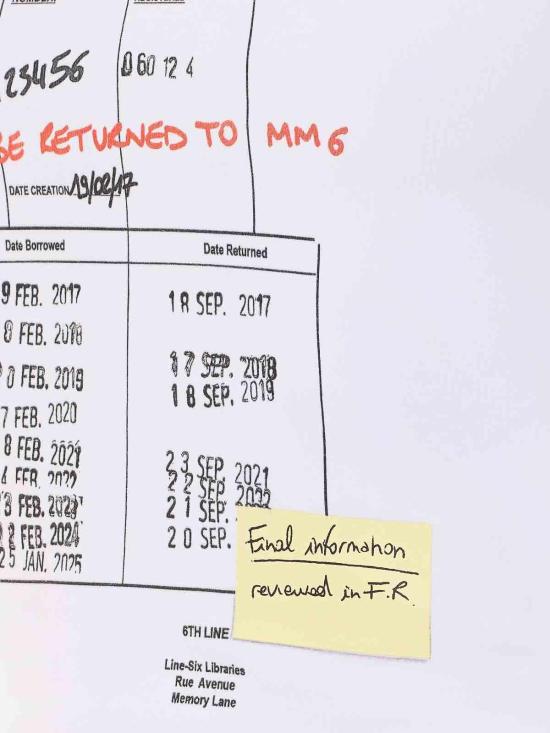 23456 060 12 4
BE RETURNED TO MM6
DATE CREATION 19/02/17
Date Borrowed Date Returned
9 FEB. 2017 18 SEP. 2017
8 FEB. 2018 17 SEP. 2018
0 FEB. 2019 18 SEP. 2019
7 FEB. 2020
8 FEB. 2021 23 SEP 2021
4 FEB. 2022 22 SEP. 2022
3 FEB. 2023 21 SEP.
2 FEB. 2024 20 SEP.
25 JAN. 2025
Final information
reviewed in F.R.
6TH LINE
Line-Six Libraries
Rue Avenue
Memory Lane